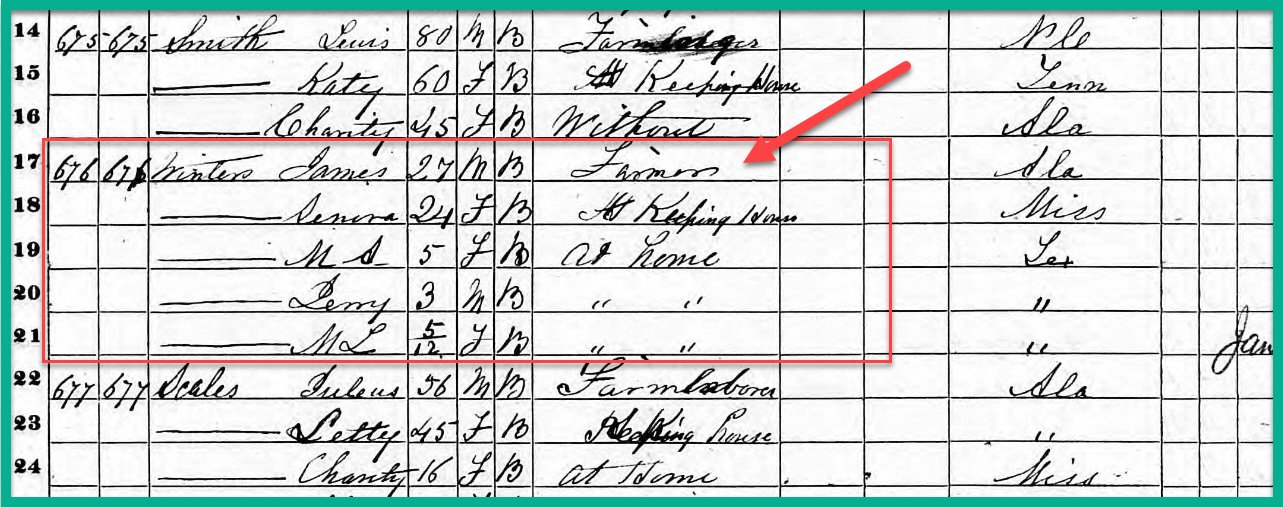 14 675 675 Smith Lewis 80 M B Farm N C
15 Katy 60 F B Keeping House Tenn
16 Charity 45 F B Without Ala
17 676 676 Winters James 27 M B Farmer Ala
18 Senora 24 F B At Keeping House Miss
19 M A 5 F B at home Tex
20 Perry 3 M B " " "
21 M L 5/12 F B " " " Jan
22 677 677 Scales 56 M B Farm laborer Ala
23 Letty 45 F B Keeping house "
24 Charity 16 F B at Home Miss